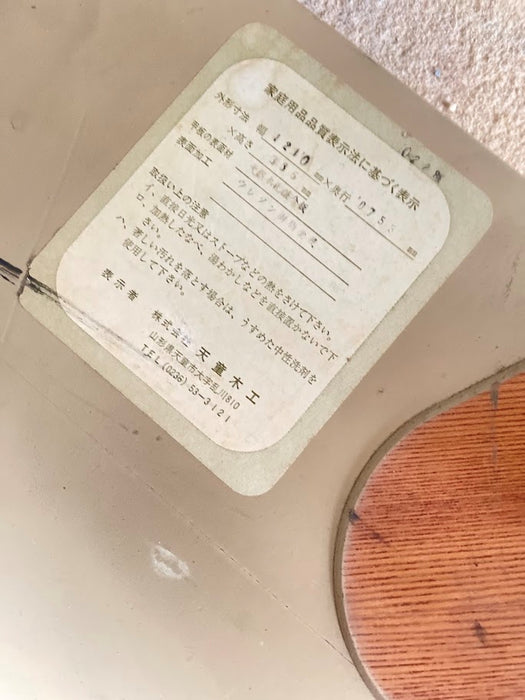 0228
家庭用品品質表示法に基づく表示
外形寸法 幅 1210 mm×奥行 0755 mm
×高さ 335 mm
甲板の表面材
表面加工 ウレタン樹脂塗装
取扱い上の注意
イ、直接日光又はストーブなどの熱をさけて下さい。
ロ、加熱したなべ、湯わかしなどを直接置かないで下
さい。
ハ、著しい汚れを落とす場合は、うすめた中性洗剤を
使用して下さい。
表示者
株式会社 天童木工
山形県天童市大字乱川810
TEL(0236)53-3121